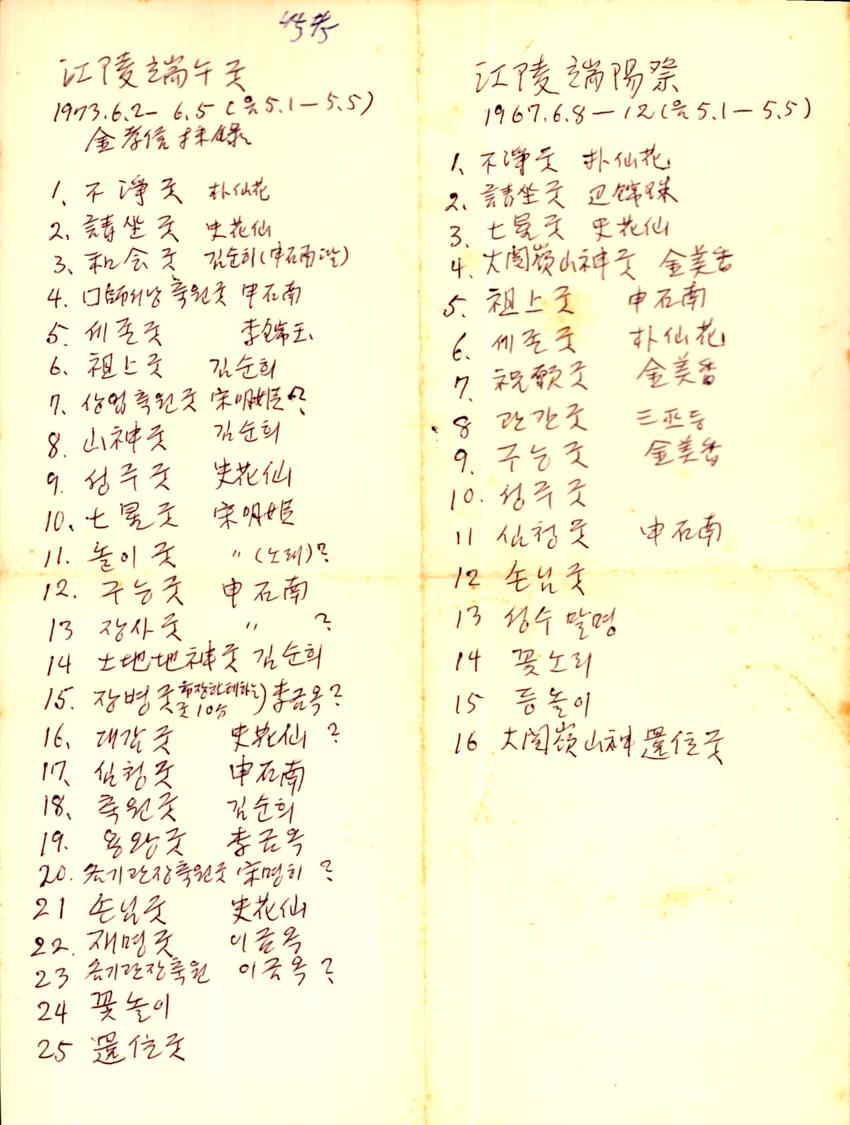 江陵端午굿
1973.6.2- 6.5 (음5.1-5.5)
金孝信 採錄
1. 不淨굿 朴仙花
2. 請坐굿 史花仙
3. 和会굿 김순희(申石南딸)
4. 축원굿 申石南
5. 세존굿 李錦玉
6. 祖上굿 김순희
7. 상업축원굿 宋明姬?
8. 山神굿 김순희
9. 성주굿 史花仙
10. 七星굿 宋明姬
11. 놀이굿 〃 (노래)?
12. 구능굿 申石南
13 장사굿 〃 ?
14 土地地神굿 김순희
15. 장병굿 李금옥?
굿10分
16. 대감굿 史花仙 ?
17. 심청굿 申石南
18. 축원굿 김순희
19. 용왕굿 李금옥
20. 各기관장축원굿 宋명히 ?
21 손님굿 史花仙
22. 재명굿 이금옥
23 各기관장축원 이금옥?
24 꽃놀이
25 還位굿
江陵端陽祭
1967.6.8-12(음5.1-5.5)
1. 不淨굿 朴仙花
2. 請坐굿
3. 七星굿 史花仙
4. 大関嶺山神굿 金美香
5. 祖上굿 申石南
6. 세존굿 朴仙花
7. 祝願굿 金美香
8 관간굿 三巫등
9. 구능굿 金美香
10. 성주굿
11 심청굿 申石南
12 손님굿
13 성수말명
14 꽃노리
15 등놀이
16 大関嶺山神還位굿